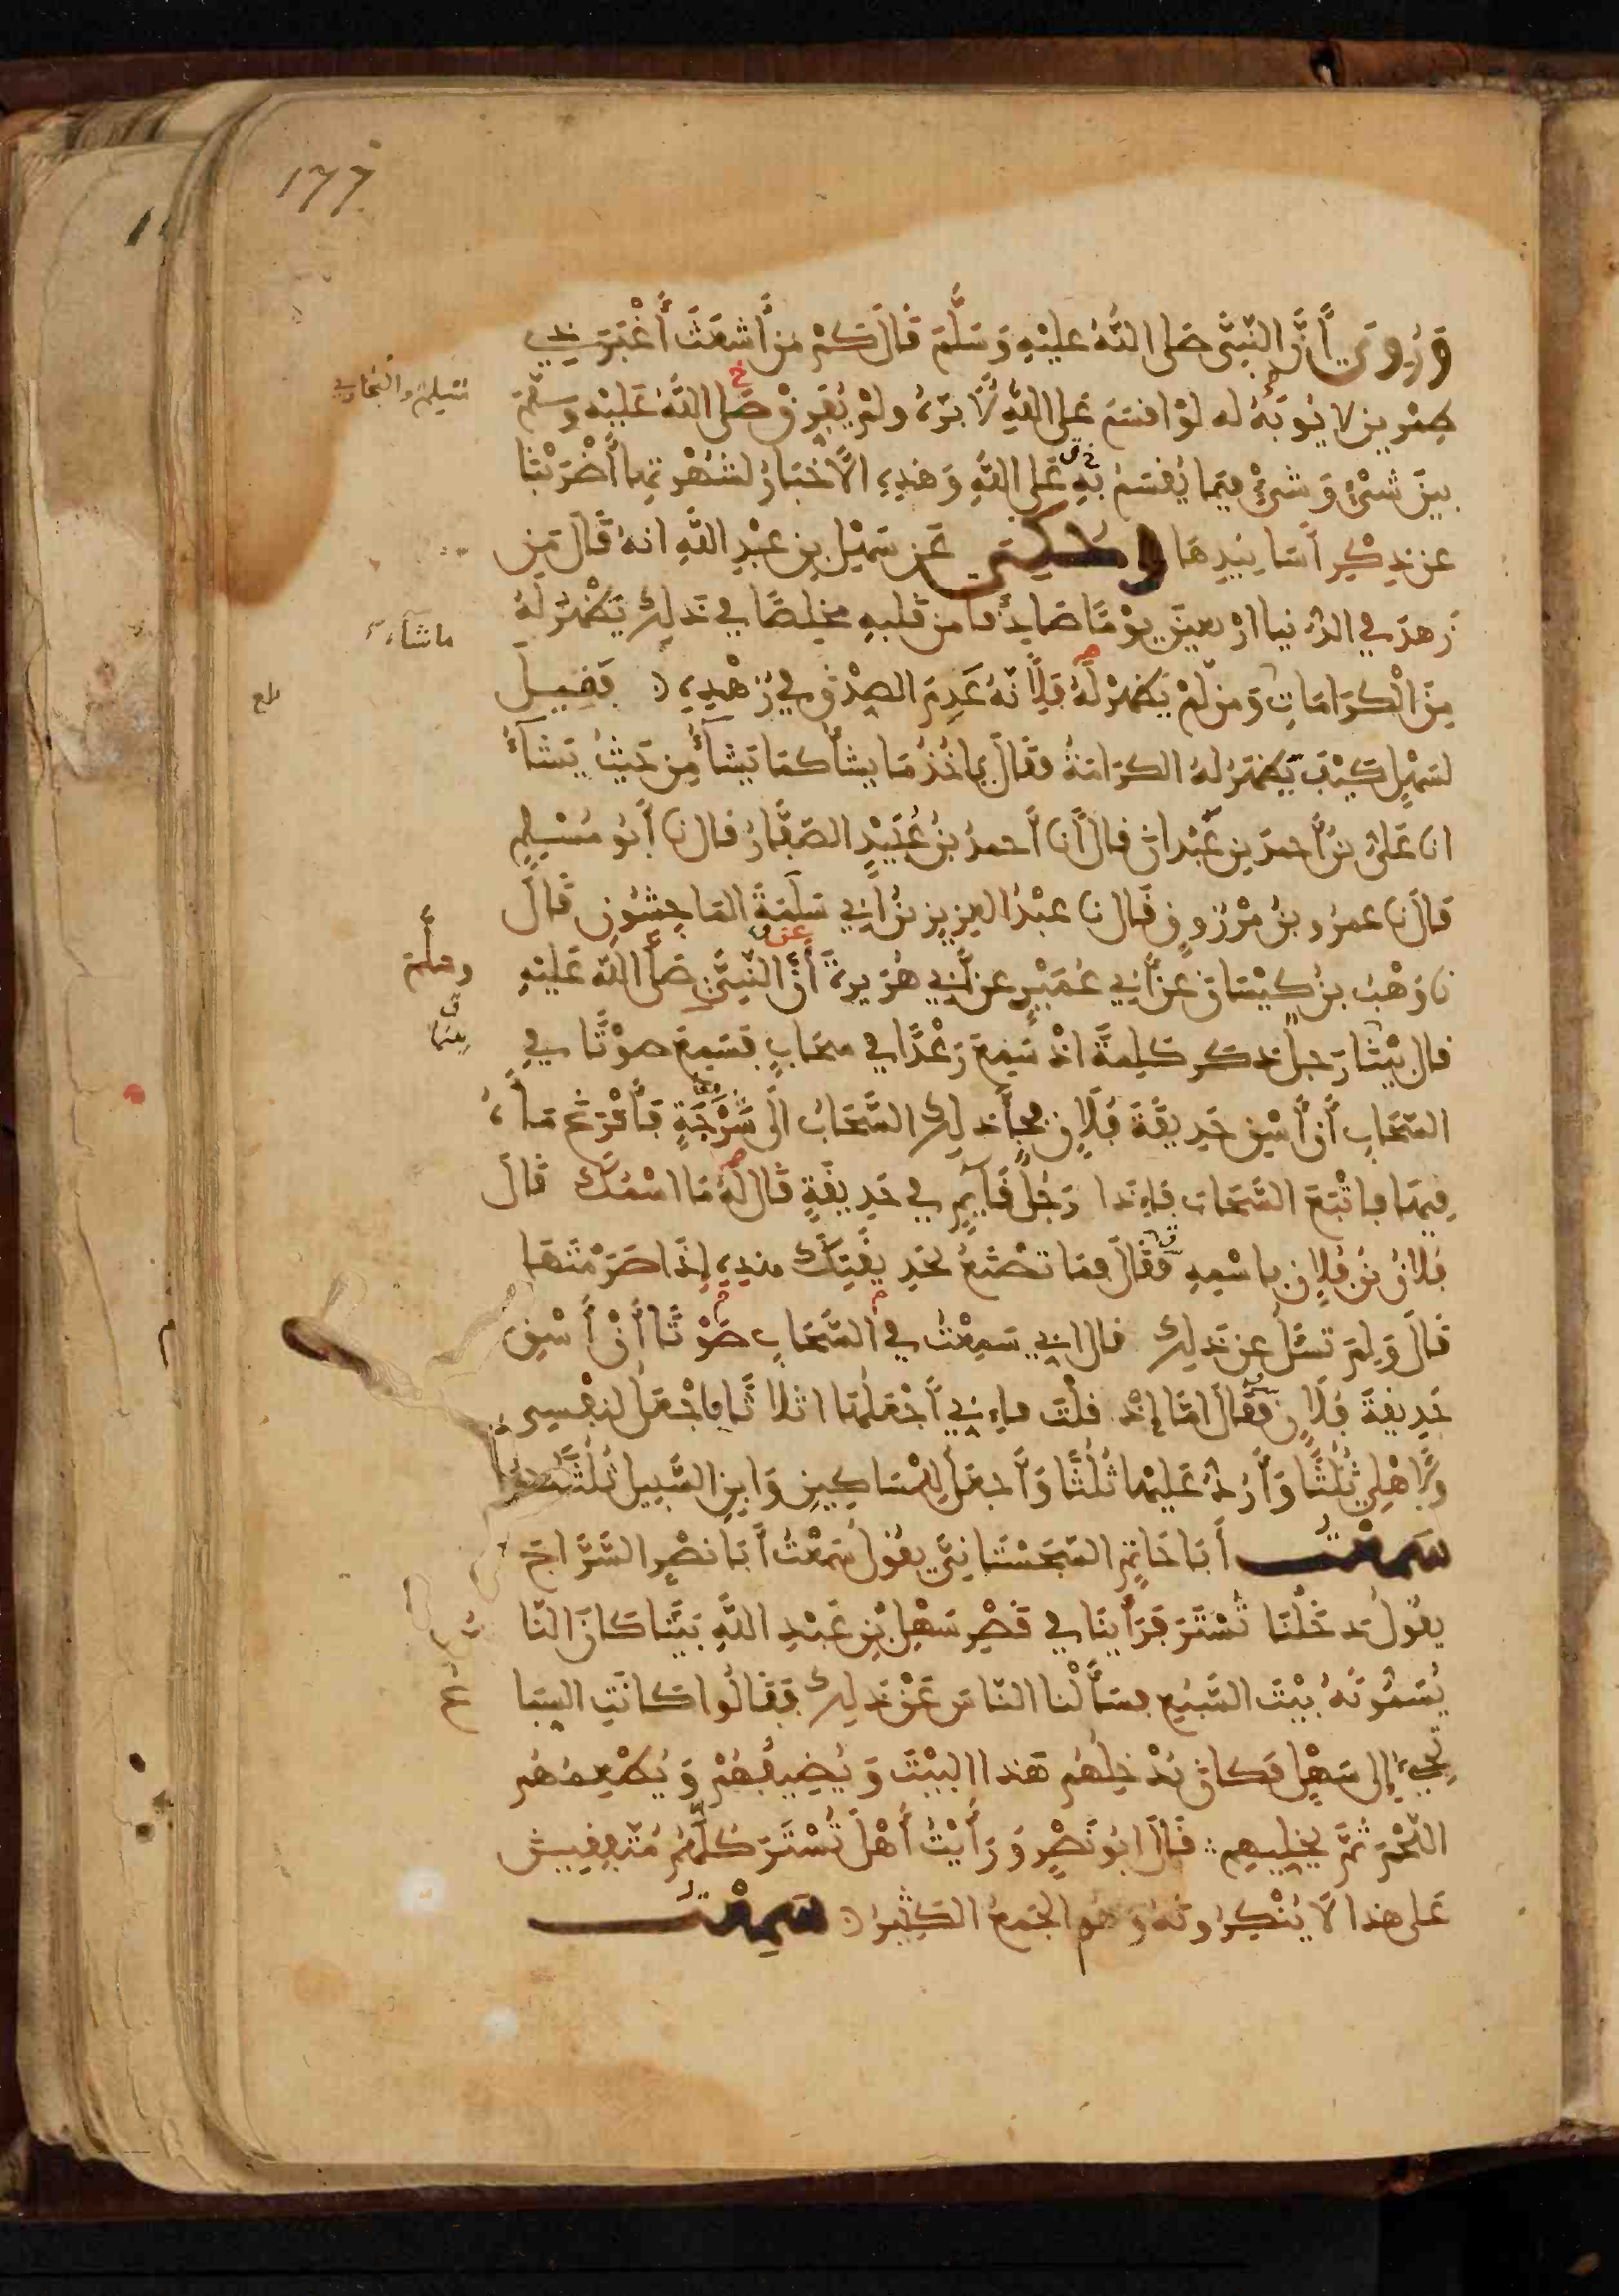 177
وَرُوِيَ أَنَّ النَّبِيَّ صَلَى اللَّهُ عَلَيْهِ وَسَلَّمَ قَالَ كَمْ مِن أَشعَثَ أَغْبَرَ ذِي
مسلم والبخاري
طِمْرين لا يُوبَهُ له لوْ اقسَمَ عَلى اللَّهِ لَأَبَرَّهُ ولمْ يُفَرِقْ صَلى اللَّهُ عَلَيْهِ وسَلَّمَ
بينَ شَيْءٍ وَشَيْءٍ فِيمَا يُقسَمُ بِهِ عَلى اللَّهِ وَهَذِهِ الأَخبَارُ لشُهْرتِهَا أَضْرَبْنَا
عن ذِكْرِ أَسَانِيدِهَا وحُكِيَ عَن سَهْلِ بنِ عَبْدِ اللَّهِ انهُ قَالَ مَن
زَهدَ في الدُّنيا ارْبعينَ يوْمًا صَادِقًا من قَلبهِ مخلِصًا في ذَلِك يَظْهَرُ لَهُ
ماشاء
مِنَ الْكَرَامَاتِ وَمن لَمْ يَظهَرْ لَهُ فَلِأَنّهُ عَدِمَ الصِدْقَ في زُهْدِهِ فَقِيلَ
لسَهْلٍ كَيْفَ يَظهَرُ لهُ الكرَامَةُ فقَالَ ياخُذُ مَا يشأُ كمَا يَشَآءُ مِن حَيْثُ يَشَآءُ
انا عَلىُّ بنُ أَحمدَ بنِ عَبْدانَ قالَ أَنا أَحمدُ بنُ عُبَيْدٍ الصَفَّارُ قال نا أَبُو مُسْلِمٍ
قالَ نا عمرُو بنُ مَرْزُوقٍ قَال نا عبْدُ العزيزِ بنُ أَبِي سَلَمَةَ المَاجِشُونِ قَالَ
نا وَهْبُ بنُ كيْسَانَ عنْ ابِي عُمَيْرٍ عن أَبِي هُرَيرةَ أَنَّ النَّبِيَّ صَلى اللَّهُ عَلَيْهِ
وسلم
قال بَيْنَا رَجلٌ ذكر كَلِمةً اذْ سَمِعَ رَعْدًا في سحَابٍ فسَمِعَ صوْتًا في
بينما
السَّحَابِ أَنْ أَسْقِ حَدِيقَةَ فُلَانٍ فجأَ ذلِك السَّحَابُ الَى سَرْحَةٍ فَأَفْرَغَ مَاءَهُ
فيهَا فاتْبَعَ السَّحَابَ فإِذَا رَجُلٌ قَآئِمٌ في حَدِيقَةٍ قَال لَهُ مَا اسْمُكَ قَالَ
فُلانُ بنُ فُلانٍ باسْمِهِ فقَالَ فمَا تصْنَعُ بحَدِيقَتِكَ هذِهِ إِذَا صَرَمْتَهَا
قَالَ وَلِمَ تسْئَلُ عن ذَلِك قال اني سَمِعْتُ في السَّحَابِ صَوْتًا أَنْ أَسْقِ
حَدِيقةَ فُلَانٍ فقَالَ امَّا إِذْ قُلْتَ فإِنِي أَجْعَلُهَا اثلاثًا فاجْعَلُ لنفْسِي
ولِأَهْلِي ثُلُثًا وَأَرُدُّ عَلَيْها ثُلُثًا وَأَجعَلُ لِلْمَسَاكِينِ وَابنِ السَّبِيلِ ثُلُثًا
سَمِعْتُ أَبَا حَاتِمٍ السِّجِسْتَانِيَّ يقُولُ سَمِعْتُ أَبَا نصْرٍ السَّرَّاجَ
يقُولُ دَخَلْنَا تُسْتَرَ فَرَأَيْنَا في قَصْرِ سَهْلِ بْنِ عَبْدِ اللَّهِ بَيْتًا كَانَ النَّا
س
يُسَمُّونَهُ بيْتَ السَّبُعِ فسَأَلْنا النّاسَ عَنْ ذلِك فَقَالُوا كَانَتِ السِّبا
ع
تَجِيءُ إِلى سَهْلٍ فكانَ يُدْخِلُهُمْ هَذا البَيْتَ وَيُضِيفُهُمْ وَيُطْعِمُهُم
اللَّحْمَ ثُمَّ يُخلِيهِم قَالَ ابُو نَصْرٍ وَرَأَيْتُ أَهْلَ تُسْتَرَ كُلَّهُمْ مُتَّفِقِينَ
عَلى هذا لا يُنْكِرُونَهُ وَهُم الجَمْعُ الكَثِيرُ سَمِعْتُ